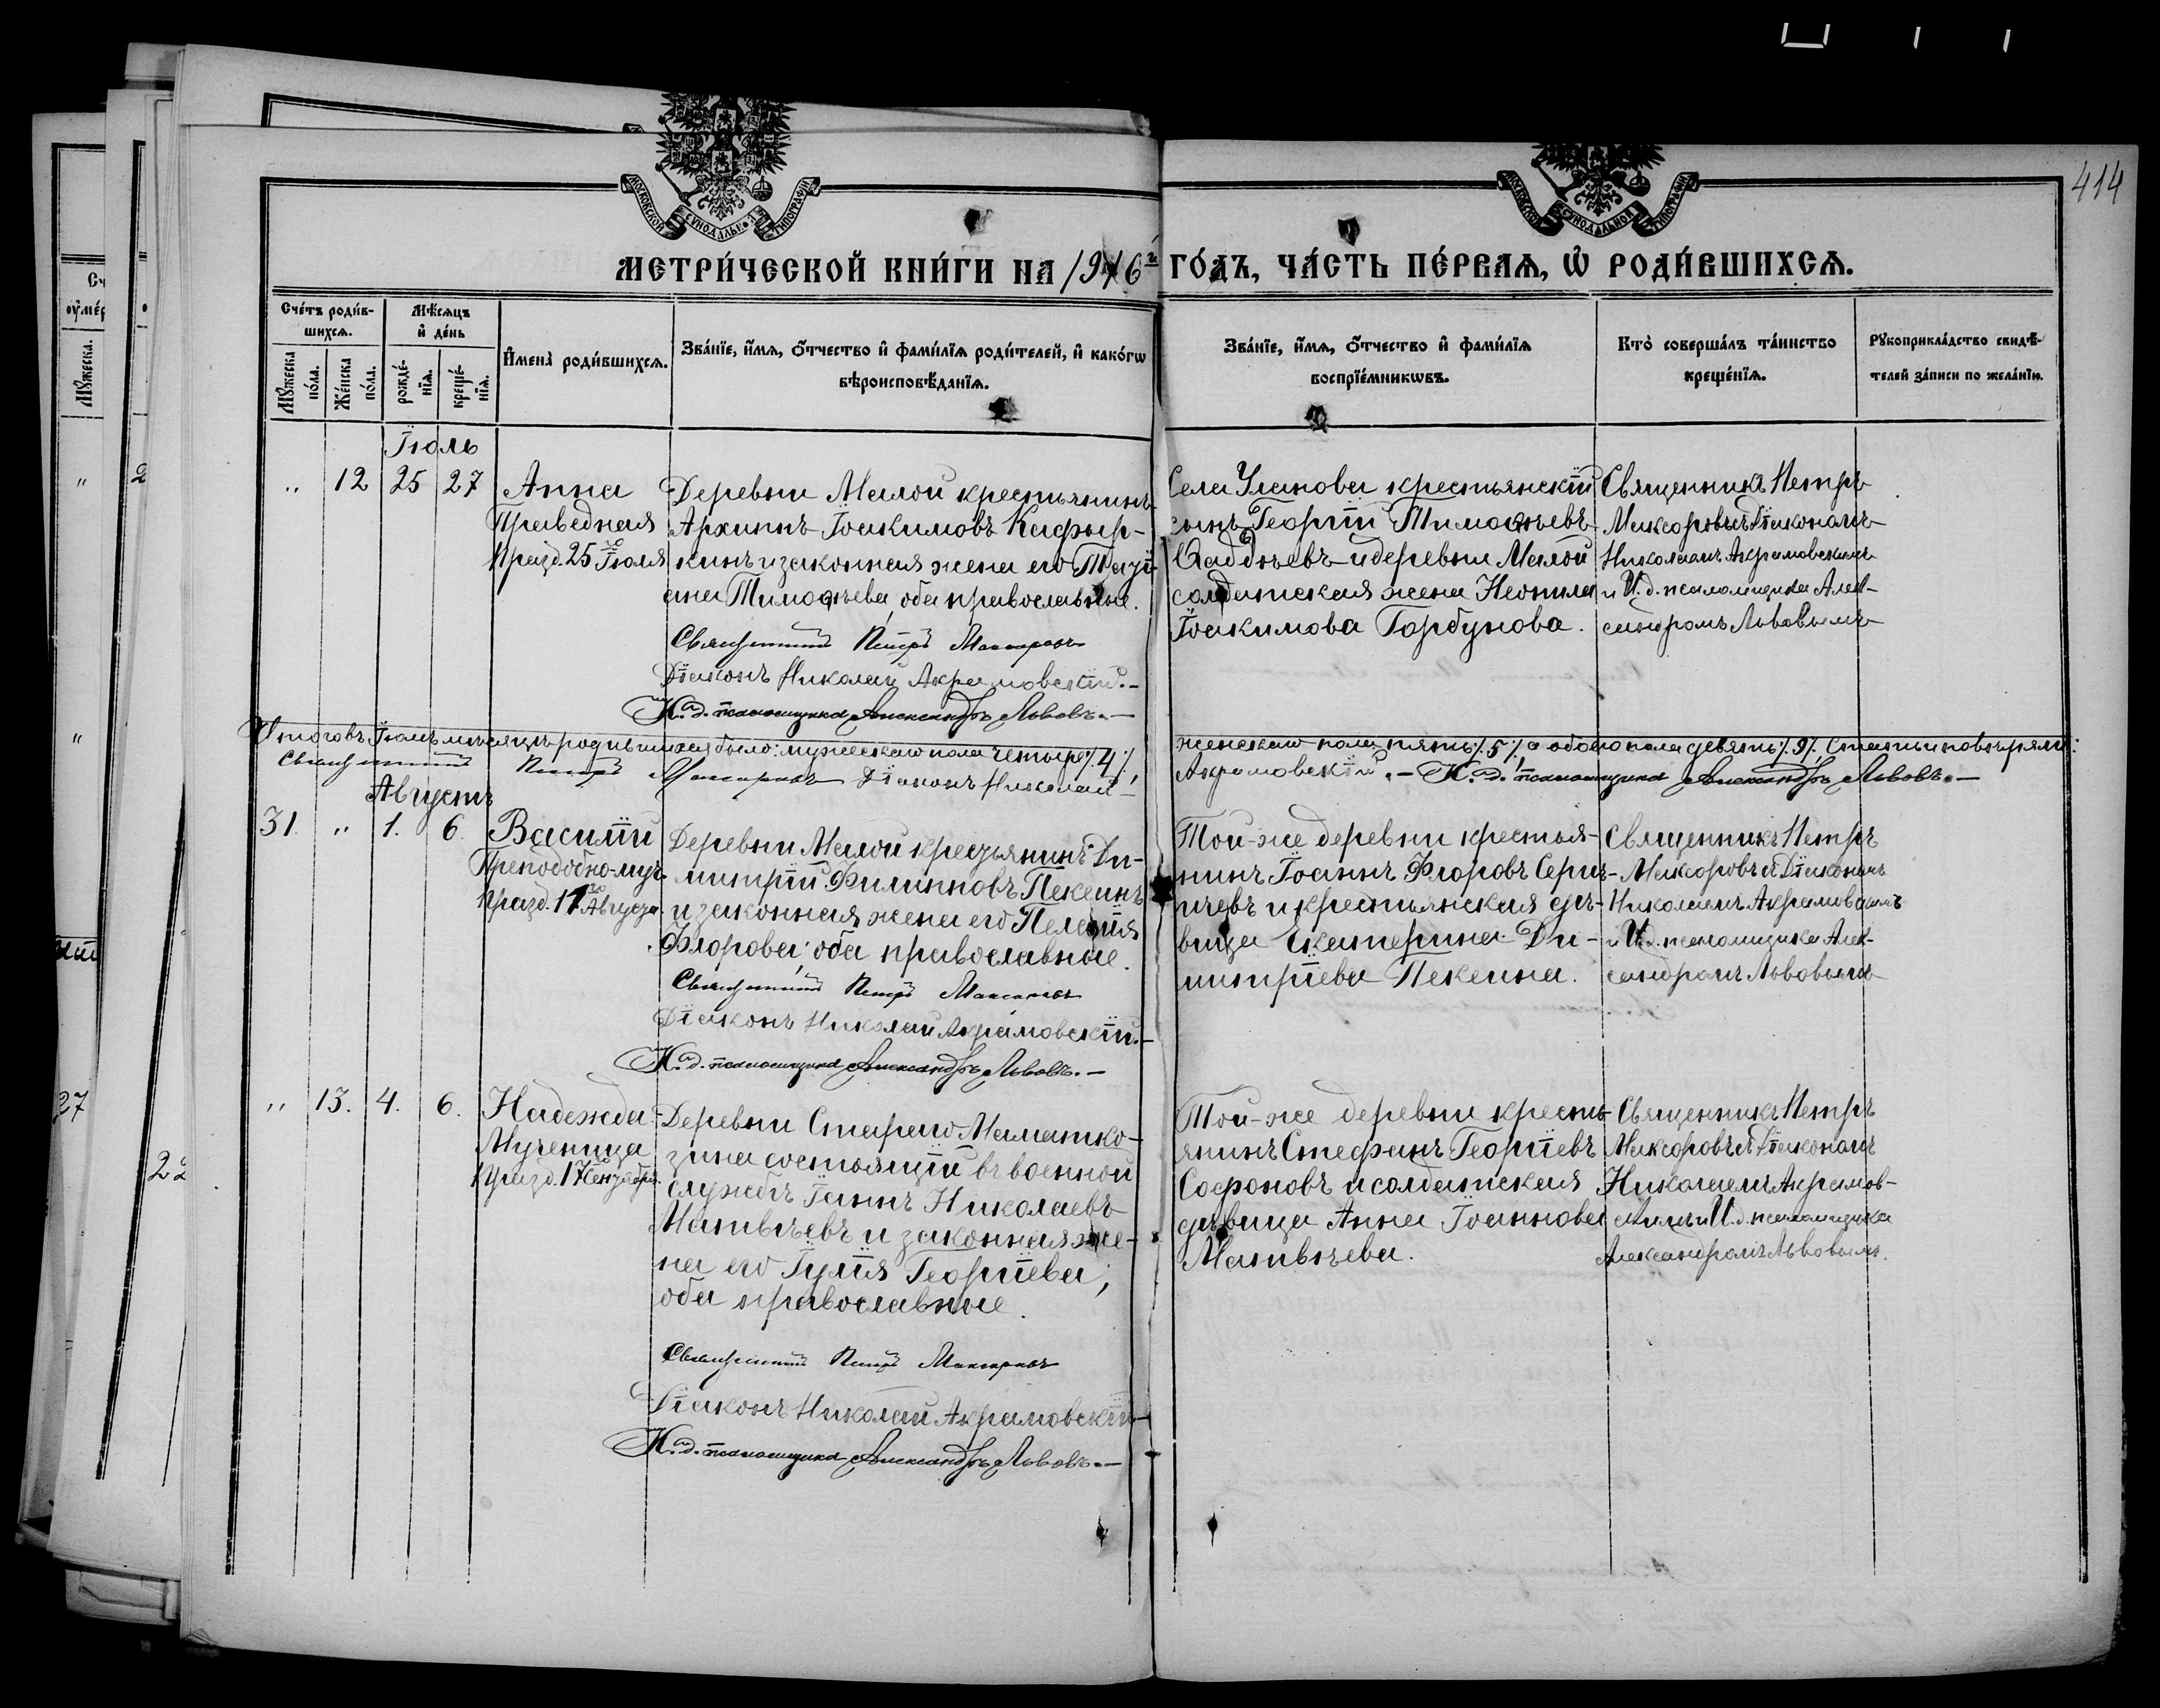 414
МОСКОВСКОЙ СѴНОДАЛЬНОЙ ТИПОГРАФІИ
МОСКОВСКОЙ СѴНОДАЛЬНОЙ ТИПОГРАФІИ
МЕТРИ́ЧЕСКОЙ КНИ́ГИ НА 1916й ГО́ДЪ, ЧА́СТЬ ПЕ́РВАѦ, Ѡ҆ РОДИ́ВШИХСѦ.
Сче́тъ роди́в-
шихсѧ.
Мꙋ́жеска по́ла.
Же́нска по́ла.
Мѣ́сѧцъ
и҆ де́нь
рожде́-
нїѧ.
креще́-
нїѧ.
И҆мена̀ роди́вшихсѧ.
Зва́нїе, и҆́мѧ, ѻ҆́тчество и҆ фами́лїѧ роди́телей, и҆ како́гѡ
вѣроисповѣ́данїѧ.
Зва́нїе, и҆́мѧ, ѻ҆́тчество и҆ фами́лїѧ
воспрїе́мникѡвъ.
Кто̀ соверша́лъ та́инство
креще́нїѧ.
Рꙋкоприкла́дство свидѣ́-
телей за́писи по жела́нїю.
Іюль
" 12 25 27
Анна
Праведная
празд. 25го Іюля
Деревни Малой крестьянинъ
Архиппъ Іоакимовъ Кафыр-
кинъ и законная жена его Таті-
ана Тимоѳѣева, оба православные.
Священникъ Петръ Максоровъ
Діаконъ Николай Акрамовскій.-
И. д. псаломщика Александръ Львовъ.-
Села Уланова крестьянскій
сынъ Георгій Тимоѳѣевъ
Ѳаддѣевъ и деревни Малой
солдатская жена Неонила
Іоакимова Горбунова.
Священникъ Петръ
Максоровъ съ Діакономъ
Николаемъ Акрамовскимъ
и И. д. псаломщика Алек-
сандромъ Львовымъ
Итого въ Іюлѣ мѣсяцѣ родившихся было: мужескаго пола четыре /4/,
женскаго пола пять /5/, а обоего пола девять /9/. Статьи повѣряли:
Священникъ Петръ Максоровъ Діаконъ Николай
Акрамовскій.- И. д. псаломщика Александръ Львовъ.-
Августъ
31. " 1. 6.
Василій
Преподобно-муч.
празд. 11го Августа.
Деревни Малой крестьянинъ Ди-
митрій Филипповъ Пекеинъ
и законная жена его Пелагія
Флорова; оба православные.
Священникъ Петръ Максоровъ
Діаконъ Николай Акрамовскій.-
И. д. псаломщика Александръ Львовъ.-
Той-же деревни крестья-
нинъ Іоаннъ Флоровъ
и крестьянская дѣ-
вица Екатерина Ди-
митріева Пекеина.
Священникъ Петръ
Максоровъ съ Діакономъ
Николаемъ Акрамовскимъ
и И. д. псаломщика Алек-
сандромъ Львовымъ
" 13. 4. 6.
Надежда
Мученица
празд. 17го Сентября.
Деревни Стараго Маматко-
зина состоящій въ военной
службѣ Іоаннъ Николаевъ
Матвѣевъ и законная же-
на его Іулія Георгіева;
оба православные.
Священникъ Петръ Максоровъ
Діаконъ Николай Акрамовскій
И. д. псаломщика Александръ Львовъ.-
Той-же деревни кресть-
янинъ Стефанъ Георгіевъ
Софроновъ и солдатская
дѣвица Анна Іоаннова
Матвѣева.
Священникъ Петръ
Максоровъ съ Діакономъ
Николаемъ Акрамов-
скимъ и И. д. псаломщика
Александромъ Львовымъ.